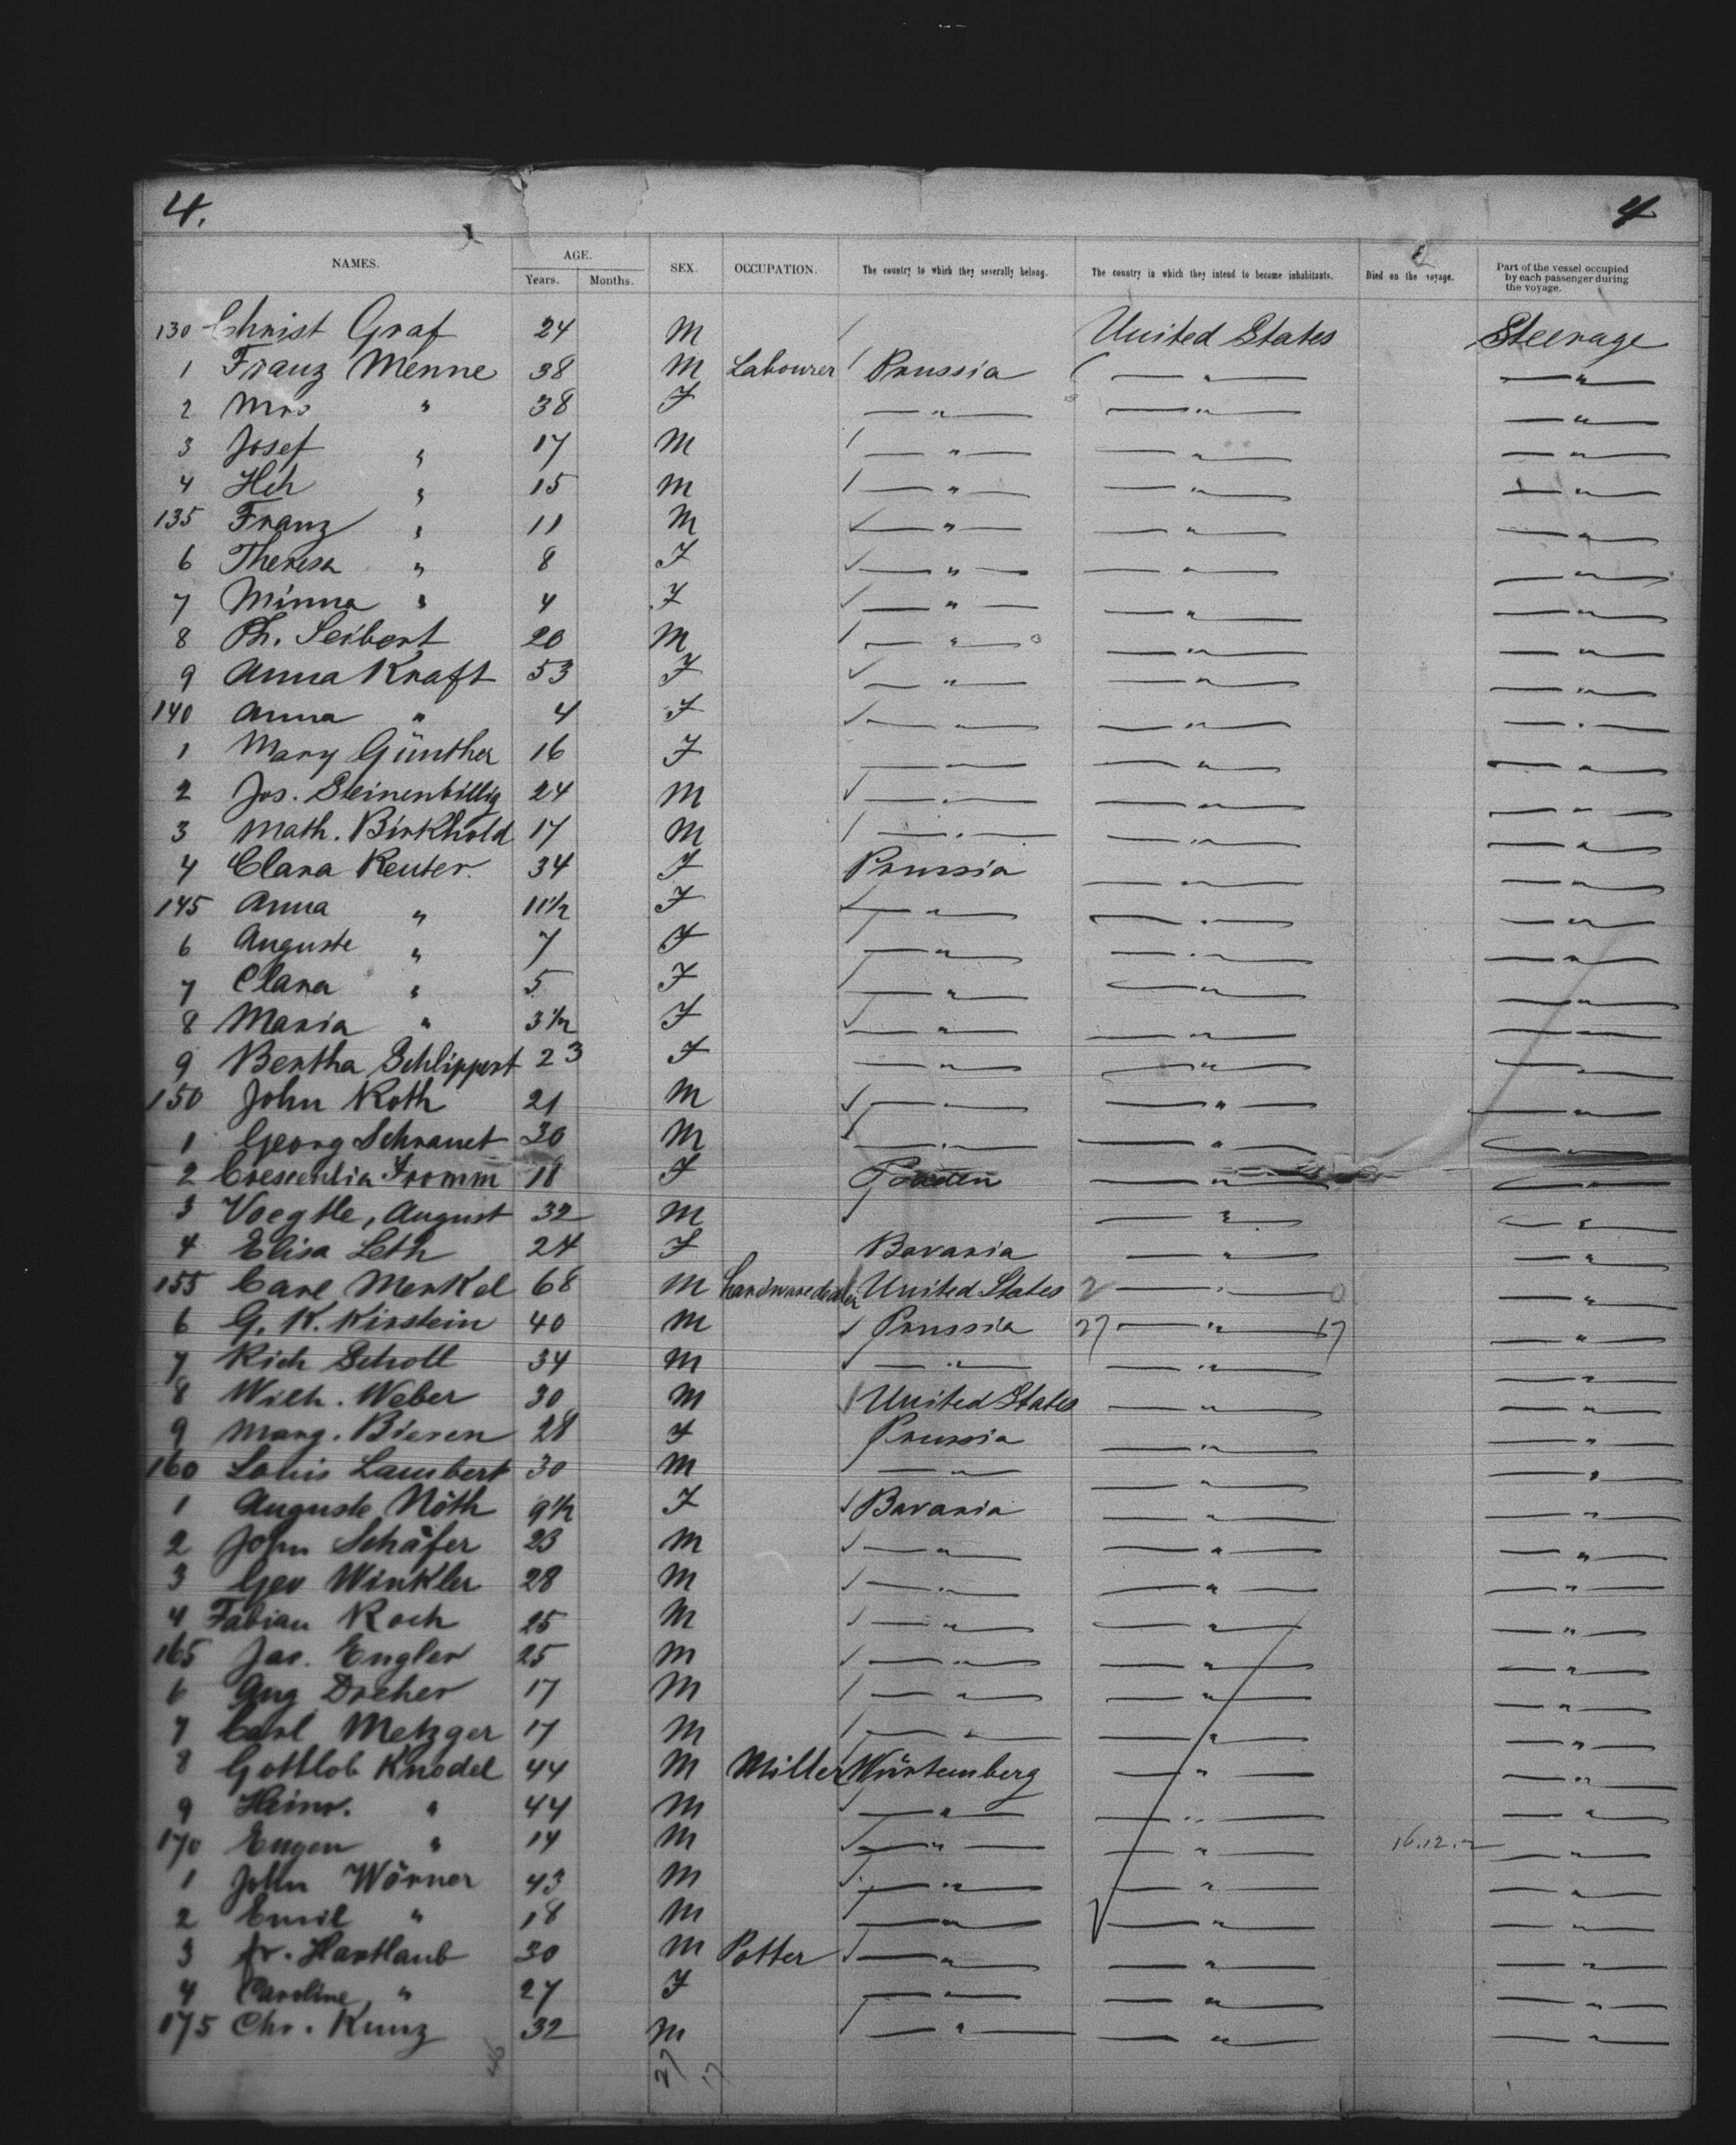 4. 4
NAMES. AGE. Years. Months. SEX. OCCUPATION. The country to which they severally belong. The country in which they intend to become inhabitants. Died on the voyage. Part of the vessel occupied by each passenger during the voyage.
130 Christ Graf 24 M United States Steerage
1 Franz Menne 38 M Labourer Prussia — " — — " —
2 Mrs " 38 F — " — — " — — " —
3 Josef " 17 M — " — — " — — " —
4 Hch " 15 M — " — — " — — " —
135 Franz " 11 M — " — — " — — " —
6 Theresa " 8 F — " — — " — — " —
7 Minna " 4 F — " — — " — — " —
8 Ph. Seibert 20 M — " — — " — — " —
9 Anna Kraft 53 F — " — — " — — " —
140 Anna " 4 F — " — — " — — " —
1 Mary Günther 16 F — " — — " — — " —
2 Jos. Steinenbillig 24 M — " — — " — — " —
3 Math. Birkhold 17 M — " — — " — — " —
4 Clara Reuter. 34 F Prussia — " — — " —
145 Anna " 11½ F — " — — " — — " —
6 Auguste " 7 F — " — — " — — " —
7 Clara " 5 F — " — — " — — " —
8 Maria " 3½ F — " — — " — — " —
9 Bertha Schlippert 23 F — " — — " — — " —
150 John Roth 21 M — " — — " — — " —
1 Georg Schranet 30 M — " — — " — — " —
2 Crescentia Fromm 18 F Baden — " — — " —
3 Voegtle, August 32 M — " — — " —
4 Elisa Leth 24 F Bavaria — " — — " —
155 Carl Merkel 68 M hardwaredealer United States 2 — " — 0 — " —
6 G. K. Kirstein 40 M Prussia 27 — " — 17 — " —
7 Rich Scholl 34 M — " — — " — — " —
8 Wilh. Weber 30 M United States — " — — " —
9 Marg. Bieren 28 F Prussia — " — — " —
160 Louis Lambert 30 M — " — — " — — " —
1 Auguste Nöth 9½ F Bavaria — " — — " —
2 John Schäfer 23 M — " — — " — — " —
3 Geo Winkler 28 M — " — — " — — " —
4 Fabian Koch 25 M — " — — " — — " —
165 Jac. Engler 25 M — " — — " — — " —
6 Aug Dreher 17 M — " — — " — — " —
7 Carl Metzger 17 M — " — — " — — " —
8 Gottlob Knodel 44 M Miller Würtemberg — " — — " —
9 Heinr. " 44 M — " — — " — — " —
170 Eugen " 14 M — " — — " — — " —
1 John Wörner 43 M — " — — " — — " —
2 Emil " 18 M — " — — " — — " —
3 Fr. Hartlaub 30 M Potter — " — — " — — " —
4 Caroline " 27 F — " — — " — — " —
175 Chr. Kunz 32 M — " — — " — — " —
46 27 17